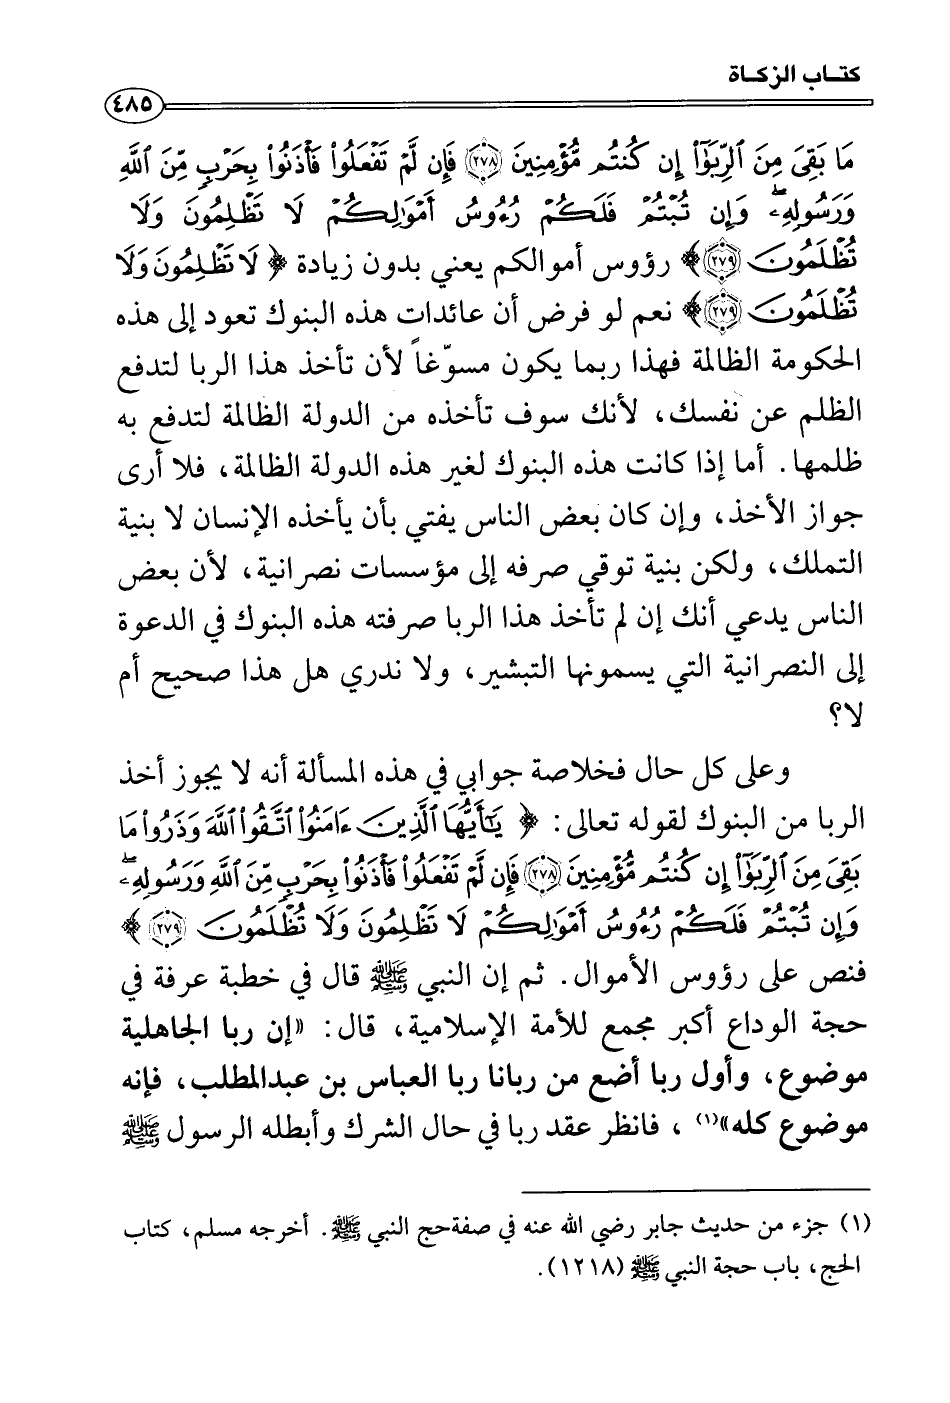 كتاب الزكاة
٤٨٥
مَا بَقِيَ مِنَ ٱلرِّبَوٰٓا۟ إِن كُنتُم مُّؤْمِنِينَ ٢٧٨ فَإِن لَّمْ تَفْعَلُوا۟ فَأْذَنُوا۟ بِحَرْبٍ مِّنَ ٱللَّهِ
وَرَسُولِهِۦ ۖ وَإِن تُبْتُمْ فَلَكُمْ رُءُوسُ أَمْوَٰلِكُمْ لَا تَظْلِمُونَ وَلَا
تُظْلَمُونَ ٢٧٩﴾ رؤوس أموالكم يعني بدون زيادة ﴿لَا تَظْلِمُونَ وَلَا
تُظْلَمُونَ ٢٧٩﴾ نعم لو فرض أن عائدات هذه البنوك تعود إلى هذه
الحكومة الظالمة فهذا ربما يكون مسوّغاً لأن تأخذ هذا الربا لتدفع
الظلم عن نفسك، لأنك سوف تأخذه من الدولة الظالمة لتدفع به
ظلمها. أما إذا كانت هذه البنوك لغير هذه الدولة الظالمة، فلا أرى
جواز الأخذ، وإن كان بعض الناس يفتي بأن يأخذه الإنسان لا بنية
التملك، ولكن بنية توقي صرفه إلى مؤسسات نصرانية، لأن بعض
الناس يدعي أنك إن لم تأخذ هذا الربا صرفته هذه البنوك في الدعوة
إلى النصرانية التي يسمونها التبشير، ولا ندري هل هذا صحيح أم
لا؟
وعلى كل حال فخلاصة جوابي في هذه المسألة أنه لا يجوز أخذ
الربا من البنوك لقوله تعالى: ﴿يَٰٓأَيُّهَا ٱلَّذِينَ ءَامَنُوا۟ ٱتَّقُوا۟ ٱللَّهَ وَذَرُوا۟ مَا
بَقِيَ مِنَ ٱلرِّبَوٰٓا۟ إِن كُنتُم مُّؤْمِنِينَ ٢٧٨ فَإِن لَّمْ تَفْعَلُوا۟ فَأْذَنُوا۟ بِحَرْبٍ مِّنَ ٱللَّهِ وَرَسُولِهِۦ ۖ
وَإِن تُبْتُمْ فَلَكُمْ رُءُوسُ أَمْوَٰلِكُمْ لَا تَظْلِمُونَ وَلَا تُظْلَمُونَ ٢٧٩﴾
فنص على رؤوس الأموال. ثم إن النبي ﷺ قال في خطبة عرفة في
حجة الوداع أكبر مجمع للأمة الإسلامية، قال: «إن ربا الجاهلية
موضوع، وأول ربا أضع من ربانا ربا العباس بن عبدالمطلب، فإنه
موضوع كله»(١) ، فانظر عقد ربا في حال الشرك وأبطله الرسول ﷺ
(١) جزء من حديث جابر رضي الله عنه في صفةحج النبي ﷺ. أخرجه مسلم، كتاب
الحج، باب حجة النبي ﷺ (١٢١٨).